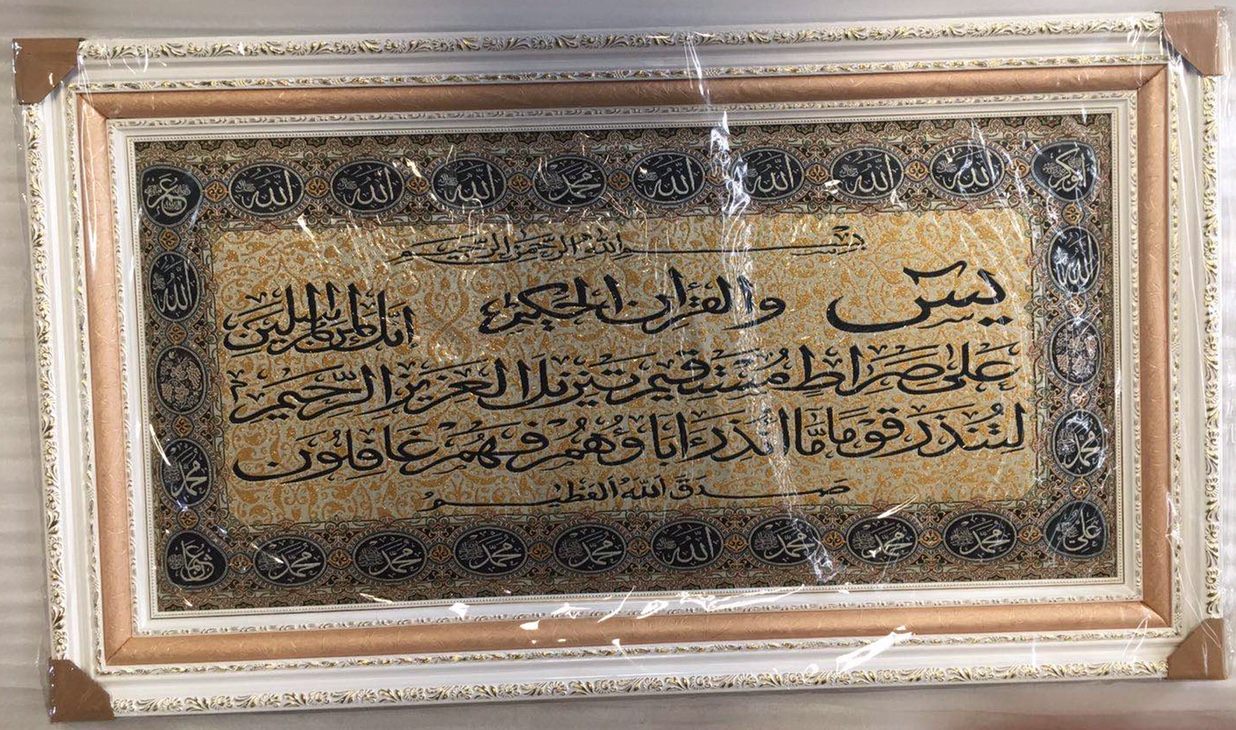 ابو بكر الله الله الله الله محمد الله الله الله عمر
بسم الله الرحمن الرحيم
يس والقرآن الحكيم انك لمن المرسلين
الله الله
على صراط مستقيم تنزيل العزيز الرحيم
لتنذر قوما ما أنذر اباؤهم فهم غافلون
محمد محمد
صدق الله العظيم
علي محمد محمد محمد الله محمد محمد محمد محمد عثمان